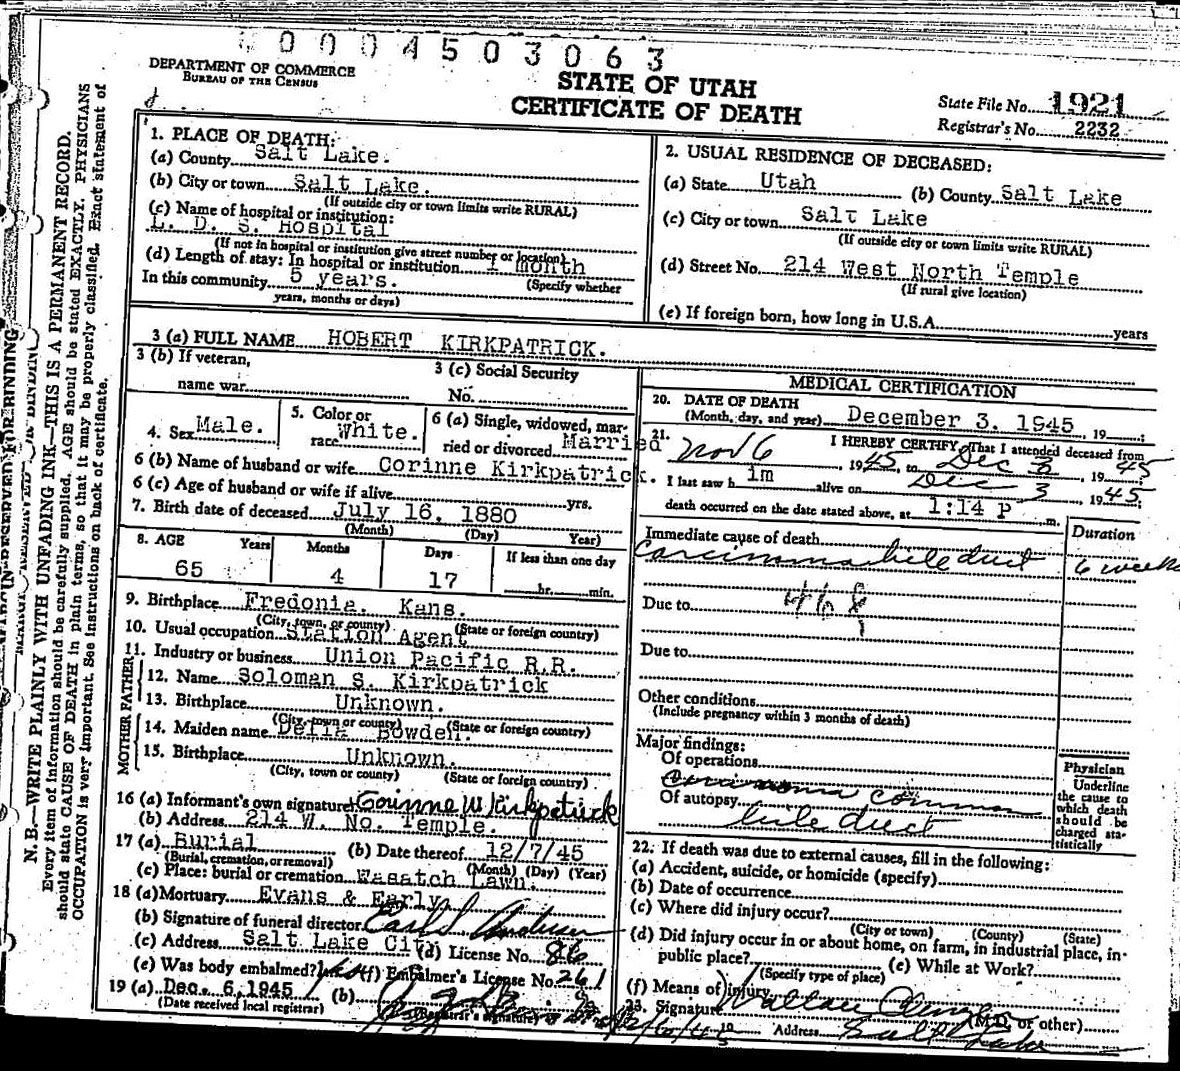 0004503063
DEPARTMENT OF COMMERCE
BUREAU OF THE CENSUS
STATE OF UTAH
CERTIFICATE OF DEATH
State File No. 1921
Registrar's No. 2232
N. B.—WRITE PLAINLY WITH UNFADING INK—THIS IS A PERMANENT RECORD.
Every item of information should be carefully supplied. AGE should be stated EXACTLY. PHYSICIANS
should state CAUSE OF DEATH in plain terms, so that it may be properly classified. Exact statement of
OCCUPATION is very important. See instructions on back of certificate.
1. PLACE OF DEATH:
(a) County Salt Lake.
(b) City or town Salt Lake.
(If outside city or town limits write RURAL)
(c) Name of hospital or institution:
L. D. S. Hospital
(If not in hospital or institution give street number or location)
(d) Length of stay: In hospital or institution 1 month
(Specify whether
In this community 5 years.
years, months or days)
2. USUAL RESIDENCE OF DECEASED:
(a) State Utah (b) County Salt Lake
(c) City or town Salt Lake
(If outside city or town limits write RURAL)
(d) Street No. 214 West North Temple
(If rural give location)
(e) If foreign born, how long in U.S.A. years
3 (a) FULL NAME HOBERT KIRKPATRICK.
3 (b) If veteran,
name war
3 (c) Social Security
No.
4. Sex Male.
5. Color or
race White.
6 (a) Single, widowed, mar-
ried or divorced Married
6 (b) Name of husband or wife Corinne Kirkpatrick.
6 (c) Age of husband or wife if alive yrs.
7. Birth date of deceased July 16, 1880
(Month) (Day) Year)
8. AGE Years Months Days If less than one day
65 4 17 hr. min.
9. Birthplace Fredonia. Kans.
(City, town, or county) (State or foreign country)
10. Usual occupation Station Agent
11. Industry or business Union Pacific R.R.
FATHER
12. Name Soloman S. Kirkpatrick
13. Birthplace Unknown.
(City, town or county) (State or foreign country)
MOTHER
14. Maiden name Della Bowden.
15. Birthplace Unknown.
(City, town or county) (State or foreign country)
16 (a) Informant's own signature Corinne W Kirkpatrick
(b) Address 214 W. No. Temple.
17 (a) Burial (b) Date thereof 12/7/45
(Burial, cremation, or removal) (Month) (Day) (Year)
(c) Place: burial or cremation Wasatch Lawn.
18 (a) Mortuary Evans & Early.
(b) Signature of funeral director
(c) Address Salt Lake City (d) License No. 86
(e) Was body embalmed? Yes (f) Embalmer's License No. 261
19 (a) Dec. 6, 1945 (b)
(Date received local registrar) (Registrar's signature)
MEDICAL CERTIFICATION
20. DATE OF DEATH
(Month, day, and year) December 3. 1945, 19
21. I HEREBY CERTIFY That I attended deceased from
Nov 6, 1945, to Dec 3, 1945
I last saw h im alive on Dec 3, 1945;
death occurred on the date stated above, at 1:14 P m.
Immediate cause of death Duration
Carcinoma bile duct 6 weeks
Due to
Due to
Other conditions
(Include pregnancy within 3 months of death)
Major findings:
Of operations
Carcinoma common
Of autopsy
bile duct
Physician
Underline
the cause to
which death
should be
charged sta-
tistically
22. If death was due to external causes, fill in the following:
(a) Accident, suicide, or homicide (specify)
(b) Date of occurrence
(c) Where did injury occur?
(City or town) (County) (State)
(d) Did injury occur in or about home, on farm, in industrial place, in-
public place? (e) While at Work?
(Specify type of place)
(f) Means of injury
23. Signature (M.D. or other)
Address Salt Lake